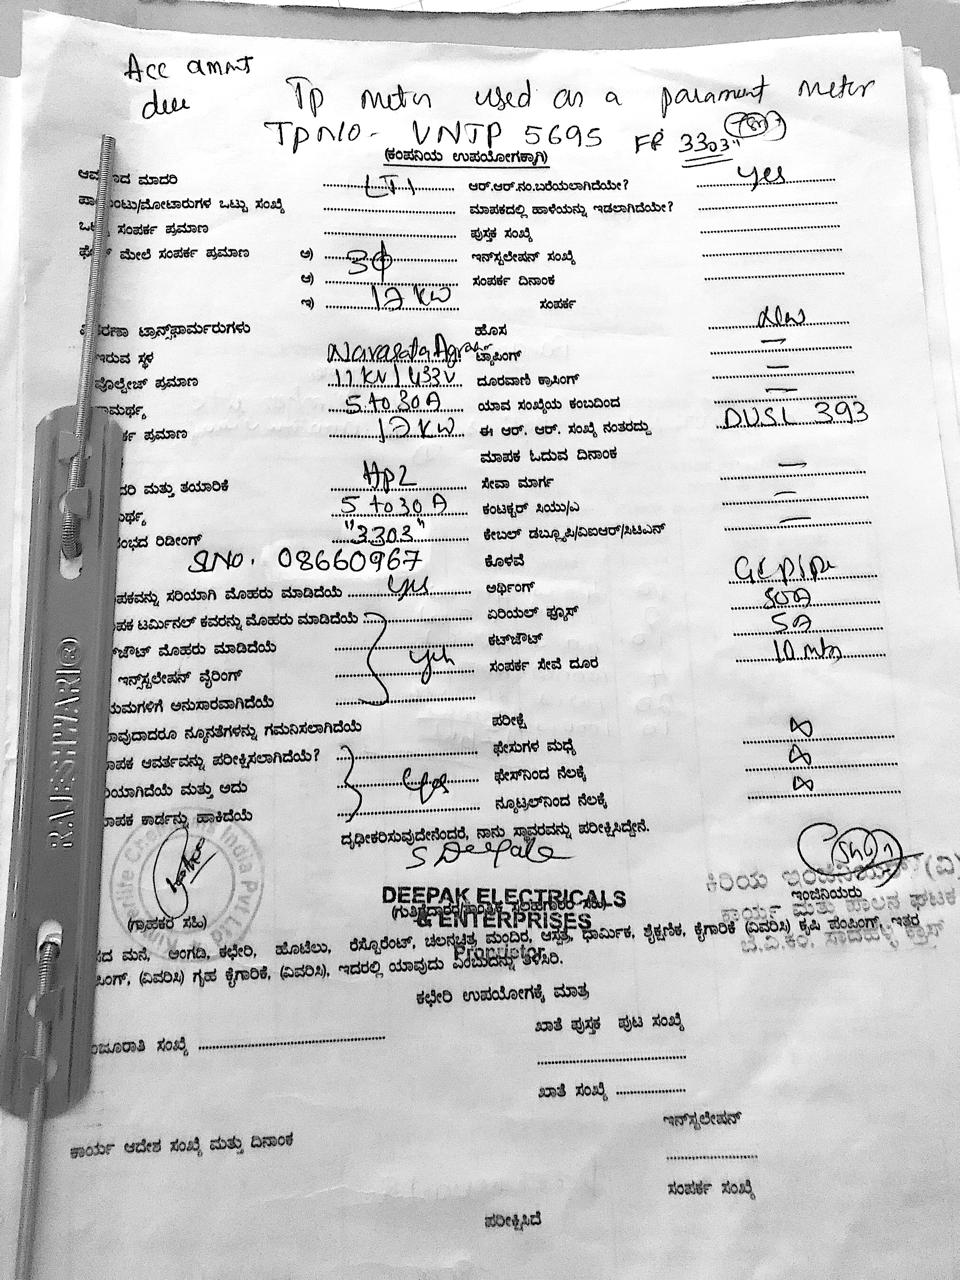 Acc ammt
Tp meter used as a parament meter
TPN/O - VNTP 5695 FR 3303"
(ಕಂಪನಿಯ ಉಪಯೋಗಕ್ಕಾಗಿ)
ಮಾದರಿ LT1 ಆರ್.ಆರ್.ನಂ.ಬರೆಯಲಾಗಿದೆಯೇ? yes
ಒಟ್ಟು ಸಂಖ್ಯೆ ಮಾಪಕದಲ್ಲಿ ಹಾಳೆಯನ್ನು ಇಡಲಾಗಿದೆಯೇ?
ಸಂಪರ್ಕ ಪ್ರಮಾಣ ಪುಸ್ತಕ ಸಂಖ್ಯೆ
ಮೇಲೆ ಸಂಪರ್ಕ ಪ್ರಮಾಣ ಅ) 3ϕ ಇನ್‌ಸ್ಟಲೇಷನ್ ಸಂಖ್ಯೆ
ಆ) ಸಂಪರ್ಕ ದಿನಾಂಕ
ಇ) 12 KW ಸಂಪರ್ಕ
ಟ್ರಾನ್ಸ್‌ಫಾರ್ಮರುಗಳು ಹೊಸ New
ಇರುವ ಸ್ಥಳ ಟ್ಯಾಪಿಂಗ್ —
ವೊಲ್ಟೇಜ್ ಪ್ರಮಾಣ 11 KV / 433V ದೂರವಾಣಿ ಕ್ರಾಸಿಂಗ್ —
5 to 30 A ಯಾವ ಸಂಖ್ಯೆಯ ಕಂಬದಿಂದ —
ಪ್ರಮಾಣ 12 KW ಈ ಆರ್. ಆರ್. ಸಂಖ್ಯೆ ನಂತರದ್ದು DUSL 393
ಮಾಪಕ ಓದುವ ದಿನಾಂಕ
ಮತ್ತು ತಯಾರಿಕೆ HPL ಸೇವಾ ಮಾರ್ಗ —
5 to 30 A ಕಂಟಕ್ಟರ್ ಸಿಯು/ಎ —
ರಿಡೀಂಗ್ "3303" ಕೇಬಲ್ ಡಬ್ಲ್ಯೂಪಿ/ವಿಐಆರ್/ಸಿಟಿಎನ್ —
SL NO. 08660967 ಕೊಳವೆ
ಸರಿಯಾಗಿ ಮೊಹರು ಮಾಡಿದೆಯೆ yes ಅರ್ಥಿಂಗ್ GI pipe
ಟರ್ಮಿನಲ್ ಕವರನ್ನು ಮೊಹರು ಮಾಡಿದೆಯೆ ಏರಿಯಲ್ ಫ್ಯೂಸ್
ಮೊಹರು ಮಾಡಿದೆಯೆ yes ಕಟ್‌ಔಟ್ 5A
ಇನ್‌ಸ್ಟಲೇಷನ್ ವೈರಿಂಗ್ ಸಂಪರ್ಕ ಸೇವೆ ದೂರ 10 mtr
ಅನುಸಾರವಾಗಿದೆಯೆ
ನ್ಯೂನತೆಗಳನ್ನು ಗಮನಿಸಲಾಗಿದೆಯೆ ಪರೀಕ್ಷೆ
ಆವರ್ತವನ್ನು ಪರೀಕ್ಷಿಸಲಾಗಿದೆಯೆ? yes ಫೇಸುಗಳ ಮಧ್ಯೆ ∞
ಮತ್ತು ಅದು ಫೇಸ್‌ನಿಂದ ನೆಲಕ್ಕೆ ∞
ಕಾರ್ಡನ್ನು ಹಾಕಿದೆಯೆ ನ್ಯೂಟ್ರಲ್‌ನಿಂದ ನೆಲಕ್ಕೆ ∞
ದೃಢೀಕರಿಸುವುದೇನೆಂದರೆ, ನಾನು ಸ್ಥಾವರವನ್ನು ಪರೀಕ್ಷಿಸಿದ್ದೇನೆ.
India Pvt Ltd
DEEPAK ELECTRICALS
& ENTERPRISES
Proprietor
ಕಿರಿಯ ಇಂಜಿನಿಯರ್ (ವಿ)
ಇಂಜಿನಿಯರು
ಕಾರ್ಯ ಮತ್ತು ಪಾಲನ ಘಟಕ
(ಗ್ರಾಹಕರ ಸಹಿ)
ಮನೆ, ಅಂಗಡಿ, ಕಛೇರಿ, ಹೊಟೆಲು, ರೆಸ್ಟೊರೆಂಟ್, ಚಲನಚಿತ್ರ ಮಂದಿರ, ಆಸ್ಪತ್ರೆ, ಧಾರ್ಮಿಕ, ಶೈಕ್ಷಣಿಕ, ಕೈಗಾರಿಕೆ (ವಿವರಿಸಿ) ಕೃಷಿ ಪಂಪಿಂಗ್, ಇತರ
(ವಿವರಿಸಿ) ಗೃಹ ಕೈಗಾರಿಕೆ, (ವಿವರಿಸಿ), ಇದರಲ್ಲಿ ಯಾವುದು ಎಂಬುದನ್ನು ತಿಳಿಸಿರಿ.
ಕಛೇರಿ ಉಪಯೋಗಕ್ಕೆ ಮಾತ್ರ
ಖಾತೆ ಪುಸ್ತಕ ಪುಟ ಸಂಖ್ಯೆ
ಸಂಖ್ಯೆ
ಖಾತೆ ಸಂಖ್ಯೆ
ಇನ್‌ಸ್ಟಲೇಷನ್
ಕಾರ್ಯ ಆದೇಶ ಸಂಖ್ಯೆ ಮತ್ತು ದಿನಾಂಕ
ಸಂಪರ್ಕ ಸಂಖ್ಯೆ
ಪರೀಕ್ಷಿಸಿದೆ
RAJESHWARI®